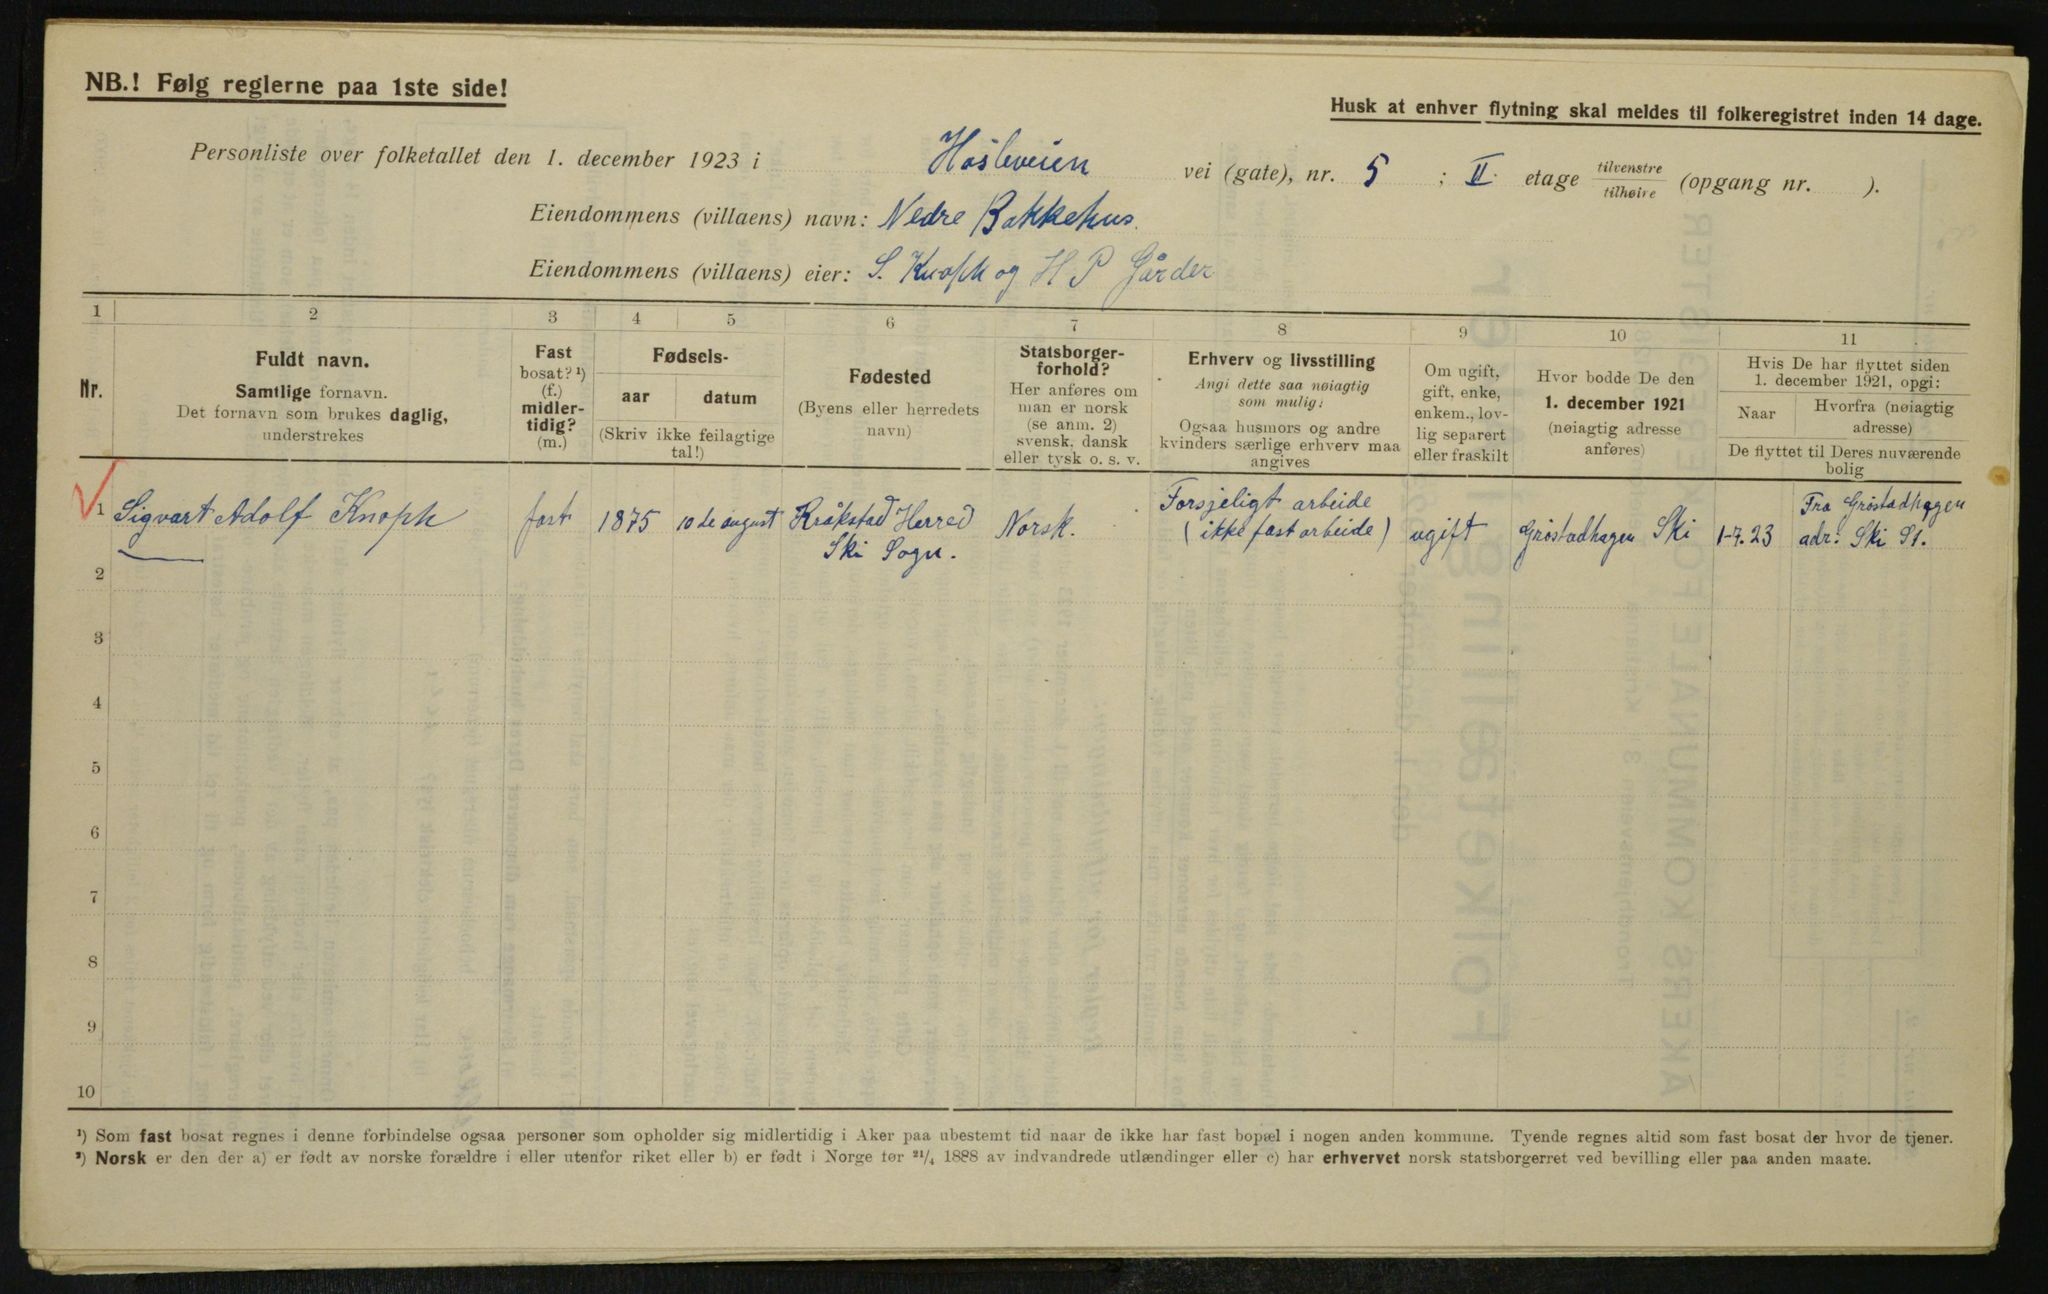 NB.! Følg reglerne paa 1ste side!
Husk at enhver flytning skal meldes til folkeregistret inden 14 dage.
Personliste over folketallet den 1. december 1923 i Hasleveien vei (gate), nr. 5 ; II. etage tilvenstre tilhøire (opgang nr. ).
Eiendommens (villaens) navn: Nedre Bakkehus.
Eiendommens (villaens) eier: S. Knoph og H P Gårder
1 2 3 4 5 6 7 8 9 10 11
Nr.
Fuldt navn.
Samtlige fornavn.
Det fornavn som brukes daglig,
understrekes
Fast
bosat? ¹)
(f.)
midler-
tidig?
(m.)
Fødsels-
aar datum
(Skriv ikke feilagtige
tal!)
Fødested
(Byens eller herredets
navn)
Statsborger-
forhold?
Her anføres om
man er norsk
(se anm. 2)
svensk, dansk
eller tysk o. s. v.
Erhverv og livsstilling
Angi dette saa nøiagtig
som mulig:
Ogsaa husmors og andre
kvinders særlige erhverv maa
angives
Om ugift,
gift, enke,
enkem., lov-
lig separert
eller fraskilt
Hvor bodde De den
1. december 1921
(nøiagtig adresse
anføres)
Hvis De har flyttet siden
1. december 1921, opgi:
Naar
Hvorfra (nøiagtig
adresse)
De flyttet til Deres nuværende
bolig
1 Sigvart Adolf Knoph fast 1875 10 de august Kråkstad Herred Ski Sogn. Norsk. Forsjeligt arbeide (ikke fast arbeide) ugift Grøstadhagen Ski 1-7.23 Fra Grøstadhagen adr: Ski St.
2
3
4
5
6
7
8
9
10
¹) Som fast bosat regnes i denne forbindelse ogsaa personer som opholder sig midlertidig i Aker paa ubestemt tid naar de ikke har fast bopæl i nogen anden kommune. Tyende regnes altid som fast bosat der hvor de tjener.
²) Norsk er den der a) er født av norske forældre i eller utenfor riket eller b) er født i Norge før ²¹/₄ 1888 av indvandrede utlændinger eller c) har erhvervet norsk statsborgerret ved bevilling eller paa anden maate.